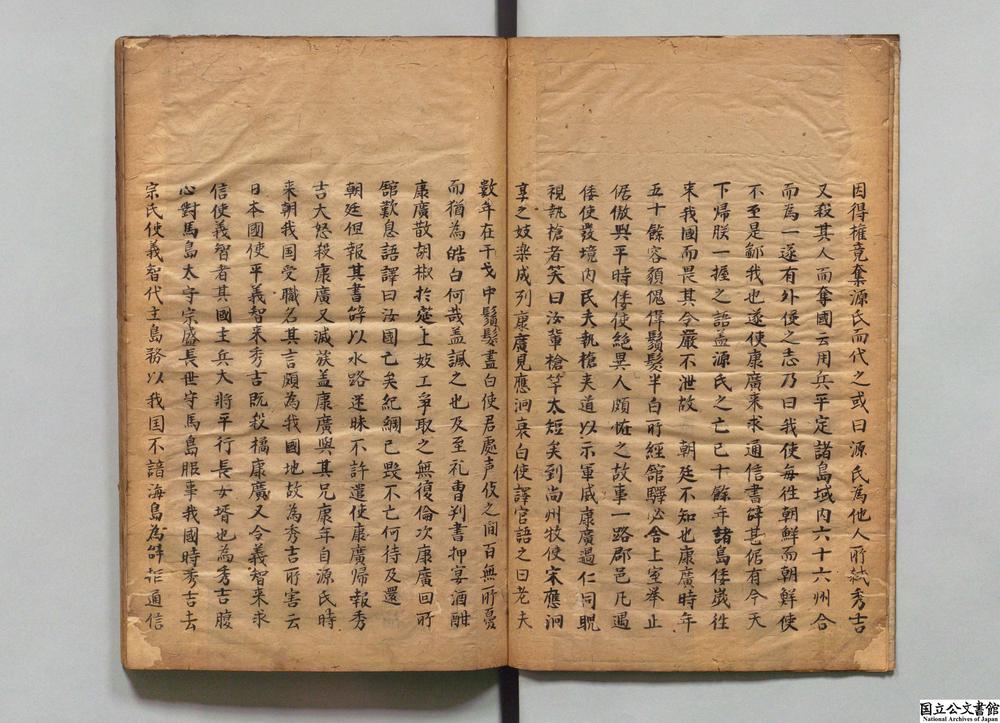 因得權竟奪源氏而代之或曰源氏為他人所弑秀吉
又殺其人而奪國云用兵平定諸島域內六十六州合
而為一遂有外侵之志乃曰我使每徃朝鮮而朝鮮使
不至是鄙我也遂使康廣来求通信書辭甚倨有今天
下帰朕一握之語盖源氏之亡已十餘年諸島倭歲徃
来我國而畏其令嚴不泄故 朝廷不知也康廣時年
五十餘容貌傀偉鬚髮半白所經舘驛必舍上室举止
倨傲與平時倭使絶異人頗恠之故事一路郡邑凡遇
倭使發境內民夫執槍夾道以示軍威康廣過仁同睨
視執槍者笑曰汝輩槍竿太短矣到尚州牧使宋應泂
享之妓樂成列康廣見應泂衰白使譯官語之曰老夫
數年在干戈中鬚髮盡白使君處声伎之間百無所憂
而猶為皓白何哉盖諷之也及至礼曹判書押宴酒酣
康廣散胡椒於莚上妓工爭取之無復倫次康廣回所
舘歎息語譯曰汝國亡矣紀綱已毀不亡何待及還
朝廷但報其書辭以水路迷昧不許遣使康廣帰報秀
吉大怒殺康廣又滅族盖康廣與其兄康年自源氏時
来朝我国受職名其言頗為我國地故為秀吉所害云
日本國使平義智来秀吉既殺橘康廣又令義智来求
信使義智者其國主兵大將平行長女壻也為秀吉腹
心對馬島太守宗盛長世守馬島服事我國時秀吉去
宗氏使義智代主島務以我国不諳海島為辭拒通信
国立公文書館
National Archives of Japan